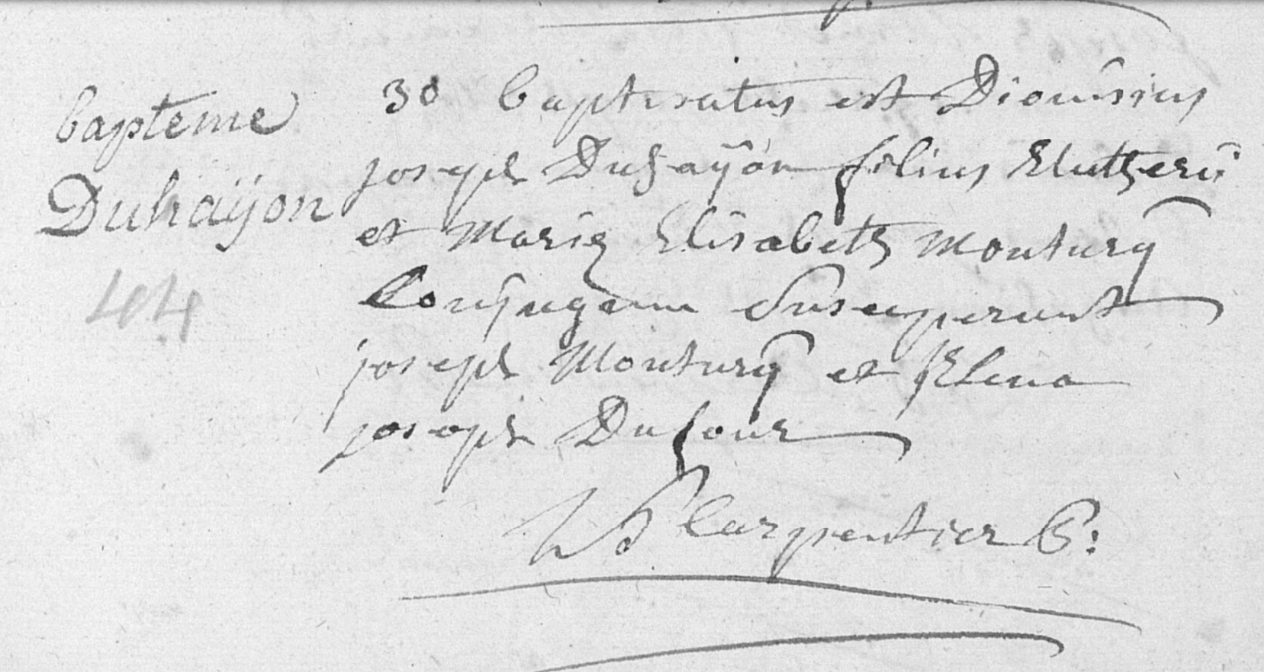 bapteme
Duhaijon
44
30 baptisatus est Dionisius
joseph Duhaÿon filius Elutherii
et Mariæ Elisabeth Monturÿ
Conjugum Susceperunt
joseph Monturÿ et Elena
joseph Dufour
Carpentier